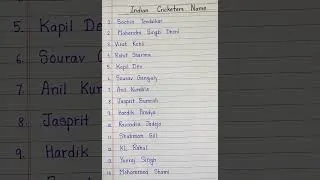 Indian Cricketers Name
1. Sachin Tendulkar
2. Mahendra Singh Dhoni
3. Virat Kohli
4. Rohit Sharma
5. Kapil Dev
6. Sourav Ganguly
7. Anil Kumble
8. Jasprit Bumrah
9. Hardik Pandya
10. Ravindra Jadeja
11. Shubman Gill
12. KL Rahul
13. Yuvraj Singh
14. Mohammed Shami
5. Kapil De
6. Sourav
7. Anil Ku
8. Jasprit
9. Hardik